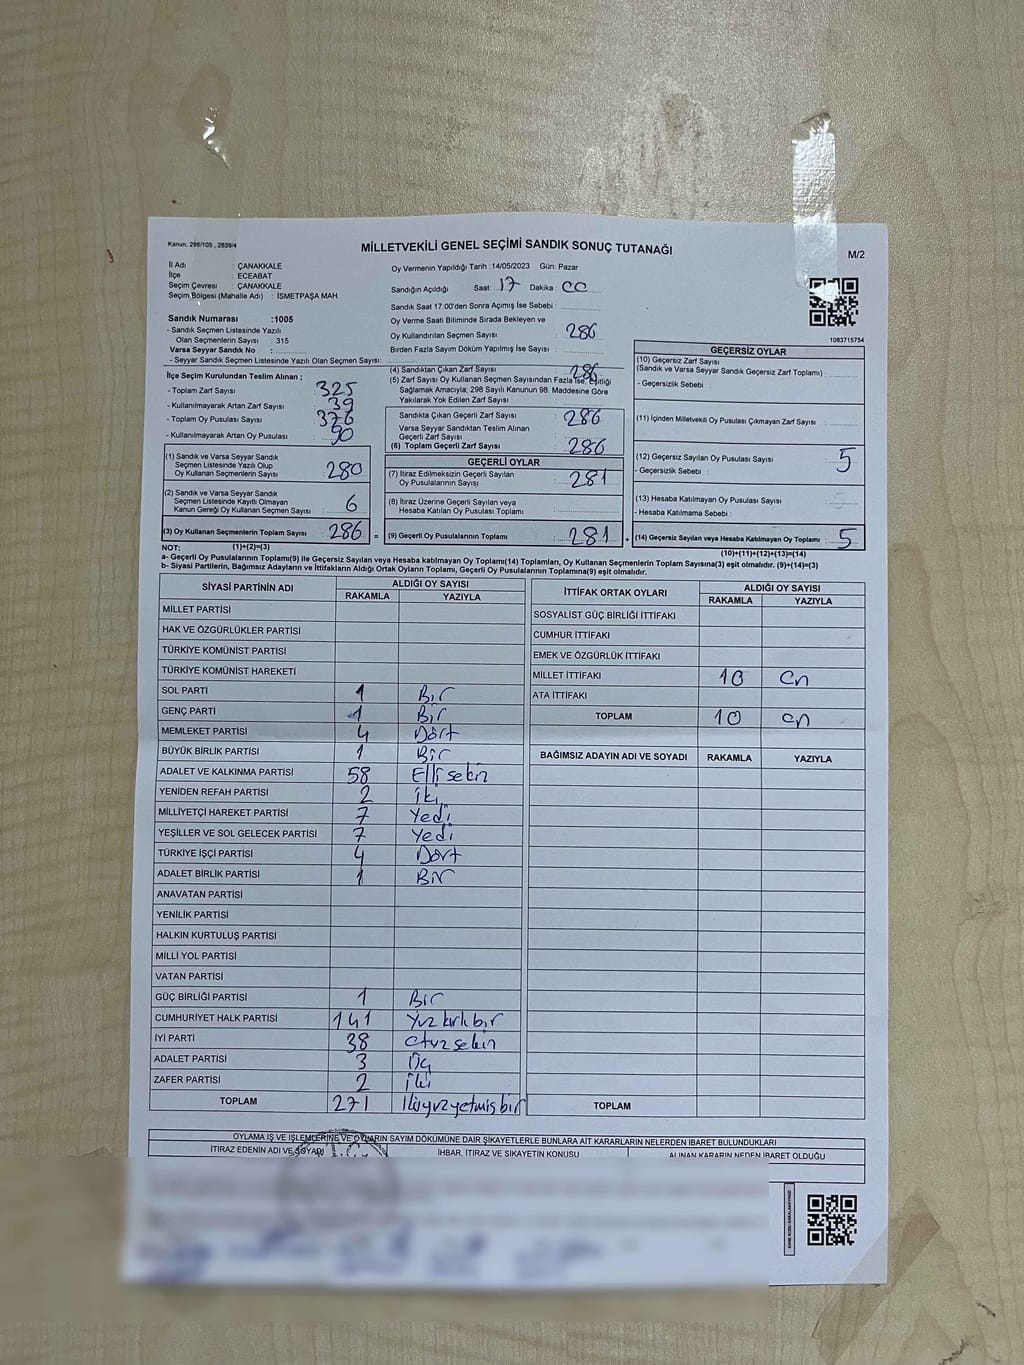 Kanun: 298/105 , 2839/4
MİLLETVEKİLİ GENEL SEÇİMİ SANDIK SONUÇ TUTANAĞI
M/2
İl Adı : ÇANAKKALE
İlçe : ECEABAT
Seçim Çevresi : ÇANAKKALE
Seçim Bölgesi (Mahalle Adı) : İSMETPAŞA MAH.
Oy Vermenin Yapıldığı Tarih :14/05/2023 Gün: Pazar
Sandığın Açıldığı Saat: 17 Dakika:
Sandık Saat 17:00'den Sonra Açılmış İse Sebebi :
Sandık Numarası :1005
- Sandık Seçmen Listesinde Yazılı
Olan Seçmenlerin Sayısı : 315
Varsa Seyyar Sandık No :
- Seyyar Sandık Seçmen Listesinde Yazılı Olan Seçmen Sayısı:
Oy Verme Saati Bitiminde Sırada Bekleyen ve
Oy Kullandırılan Seçmen Sayısı : 286
Birden Fazla Sayım Döküm Yapılmış İse Sayısı :
1083715754
İlçe Seçim Kurulundan Teslim Alınan ;
- Toplam Zarf Sayısı : 325
- Kullanılmayarak Artan Zarf Sayısı : 39
- Toplam Oy Pusulası Sayısı : 376
- Kullanılmayarak Artan Oy Pusulası : 90
(1) Sandık ve Varsa Seyyar Sandık
Seçmen Listesinde Yazılı Olup
Oy Kullanan Seçmenlerin Sayısı : 280
(2) Sandık ve Varsa Seyyar Sandık
Seçmen Listesinde Kayıtlı Olmayan
Kanun Gereği Oy Kullanan Seçmen Sayısı : 6
(3) Oy Kullanan Seçmenlerin Toplam Sayısı : 286 =
(4) Sandıktan Çıkan Zarf Sayısı : 286
(5) Zarf Sayısı Oy Kullanan Seçmen Sayısından Fazla ise, Eşitliği
Sağlamak Amacıyla; 298 Sayılı Kanunun 98. Maddesine Göre
Yakılarak Yok Edilen Zarf Sayısı :
Sandıkta Çıkan Geçerli Zarf Sayısı : 286
Varsa Seyyar Sandıktan Teslim Alınan
Geçerli Zarf Sayısı :
(6) Toplam Geçerli Zarf Sayısı : 286
GEÇERLİ OYLAR
(7) İtiraz Edilmeksizin Geçerli Sayılan
Oy Pusulalarının Sayısı : 281
(8) İtiraz Üzerine Geçerli Sayılan veya
Hesaba Katılan Oy Pusulası Toplamı :
(9) Geçerli Oy Pusulalarının Toplamı : 281 +
GEÇERSİZ OYLAR
(10) Geçersiz Zarf Sayısı
(Sandık ve Varsa Seyyar Sandık Geçersiz Zarf Toplamı) :
- Geçersizlik Sebebi :
(11) İçinden Milletvekili Oy Pusulası Çıkmayan Zarf Sayısı :
(12) Geçersiz Sayılan Oy Pusulası Sayısı : 5
- Geçersizlik Sebebi :
(13) Hesaba Katılmayan Oy Pusulası Sayısı :
- Hesaba Katılmama Sebebi :
(14) Geçersiz Sayılan veya Hesaba Katılmayan Oy Toplamı : 5
NOT: (1)+(2)=(3) (10)+(11)+(12)+(13)=(14)
a- Geçerli Oy Pusulalarının Toplamı(9) ile Geçersiz Sayılan veya Hesaba katılmayan Oy Toplamı(14) Toplamları, Oy Kullanan Seçmenlerin Toplam Sayısına(3) eşit olmalıdır. (9)+(14)=(3)
b- Siyasi Partilerin, Bağımsız Adayların ve İttifakların Aldığı Ortak Oyların Toplamı, Geçerli Oy Pusulalarının Toplamına(9) eşit olmalıdır.
SİYASİ PARTİNİN ADI ALDIĞI OY SAYISI
RAKAMLA YAZIYLA
MİLLET PARTİSİ
HAK VE ÖZGÜRLÜKLER PARTİSİ
TÜRKİYE KOMÜNİST PARTİSİ
TÜRKİYE KOMÜNİST HAREKETİ
SOL PARTİ 1 Bir
GENÇ PARTİ 1 Bir
MEMLEKET PARTİSİ 4 Dört
BÜYÜK BİRLİK PARTİSİ 1 Bir
ADALET VE KALKINMA PARTİSİ 58 Elli sekiz
YENİDEN REFAH PARTİSİ 2 iki
MİLLİYETÇİ HAREKET PARTİSİ 7 Yedi
YEŞİLLER VE SOL GELECEK PARTİSİ 7 Yedi
TÜRKİYE İŞÇİ PARTİSİ 4 Dört
ADALET BİRLİK PARTİSİ 1 Bir
ANAVATAN PARTİSİ
YENİLİK PARTİSİ
HALKIN KURTULUŞ PARTİSİ
MİLLİ YOL PARTİSİ
VATAN PARTİSİ
GÜÇ BİRLİĞİ PARTİSİ 1 Bir
CUMHURİYET HALK PARTİSİ 141 Yüz kırk bir
İYİ PARTİ 38 Otuz sekiz
ADALET PARTİSİ 3 Üç
ZAFER PARTİSİ 2 iki
TOPLAM 271 İkiyüz yetmiş bir
İTTİFAK ORTAK OYLARI ALDIĞI OY SAYISI
RAKAMLA YAZIYLA
SOSYALİST GÜÇ BİRLİĞİ İTTİFAKI
CUMHUR İTTİFAKI
EMEK VE ÖZGÜRLÜK İTTİFAKI
MİLLET İTTİFAKI 10 On
ATA İTTİFAKI
TOPLAM 10 On
BAĞIMSIZ ADAYIN ADI VE SOYADI RAKAMLA YAZIYLA
TOPLAM
OYLAMA İŞ VE İŞLEMLERİNE VE OYLARIN SAYIM DÖKÜMÜNE DAİR ŞİKAYETLERLE BUNLARA AİT KARARLARIN NELERDEN İBARET BULUNDUKLARI
İTİRAZ EDENİN ADI VE SOYADI İHBAR, İTİRAZ VE ŞİKAYETİN KONUSU ALINAN KARARIN NEDEN İBARET OLDUĞU
T.C.